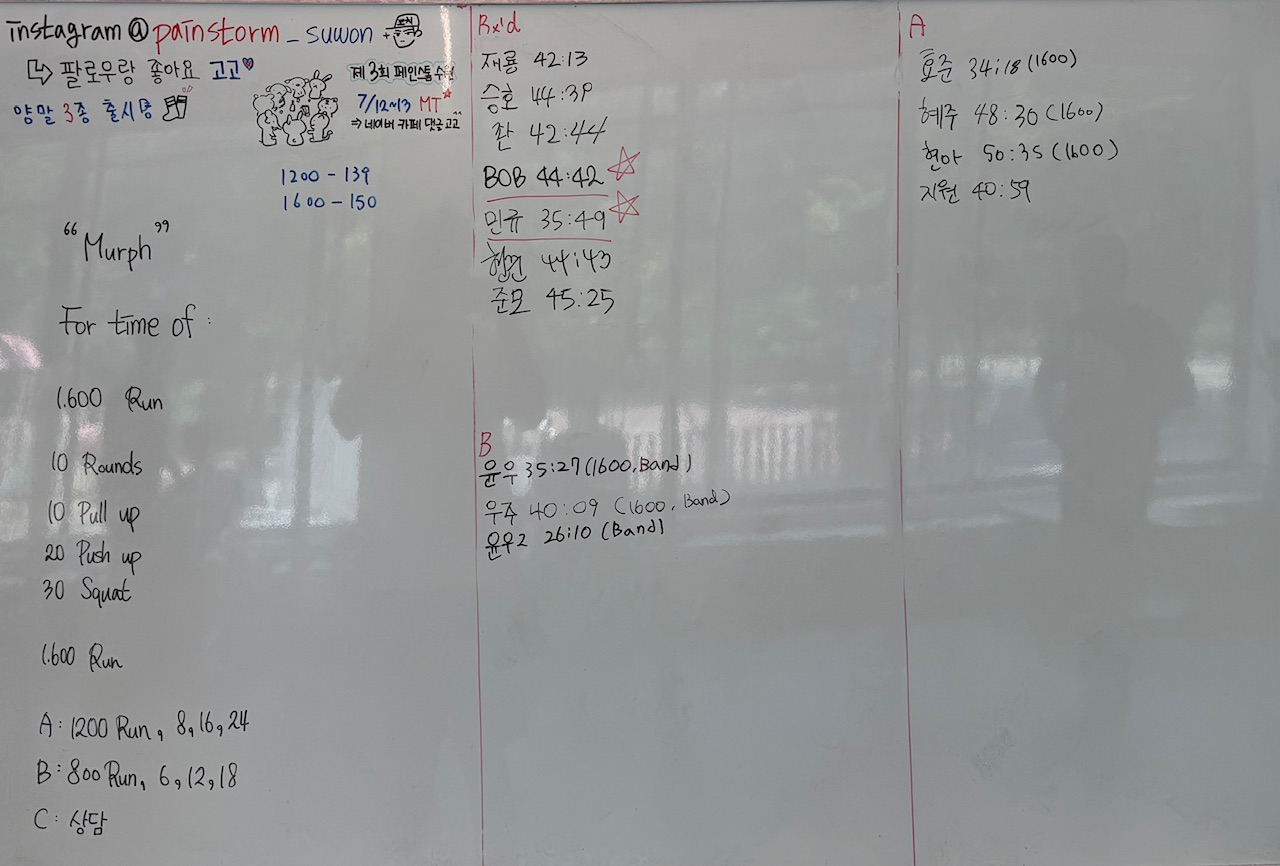 instagram @painstorm_suwon
팔로우랑 좋아요 고고
양말 3종 출시중
제 3회 페인스톰 수원
7/12~13 MT
⇒ 네이버 카페 댓글 고고^^
1200 - 139
1600 - 150
“Murph”
For time of :
1.600 Run
10 Rounds
10 Pull up
20 Push up
30 Squat
1.600 Run
A : 1200 Run, 8, 16, 24
B : 800 Run, 6, 12, 18
C : 상담
Rx'd
재룡 42:13
승호 44:39
좐 42:44
BOB 44:42
민규 35:49
44:43
준모 45:25
B
윤우 35:27 (1600, Band)
우주 40:09 (1600, Band)
윤우2 26:10 (Band)
A
효준 34:18 (1600)
혜주 48:30 (1600)
현아 50:35 (1600)
지원 40:59